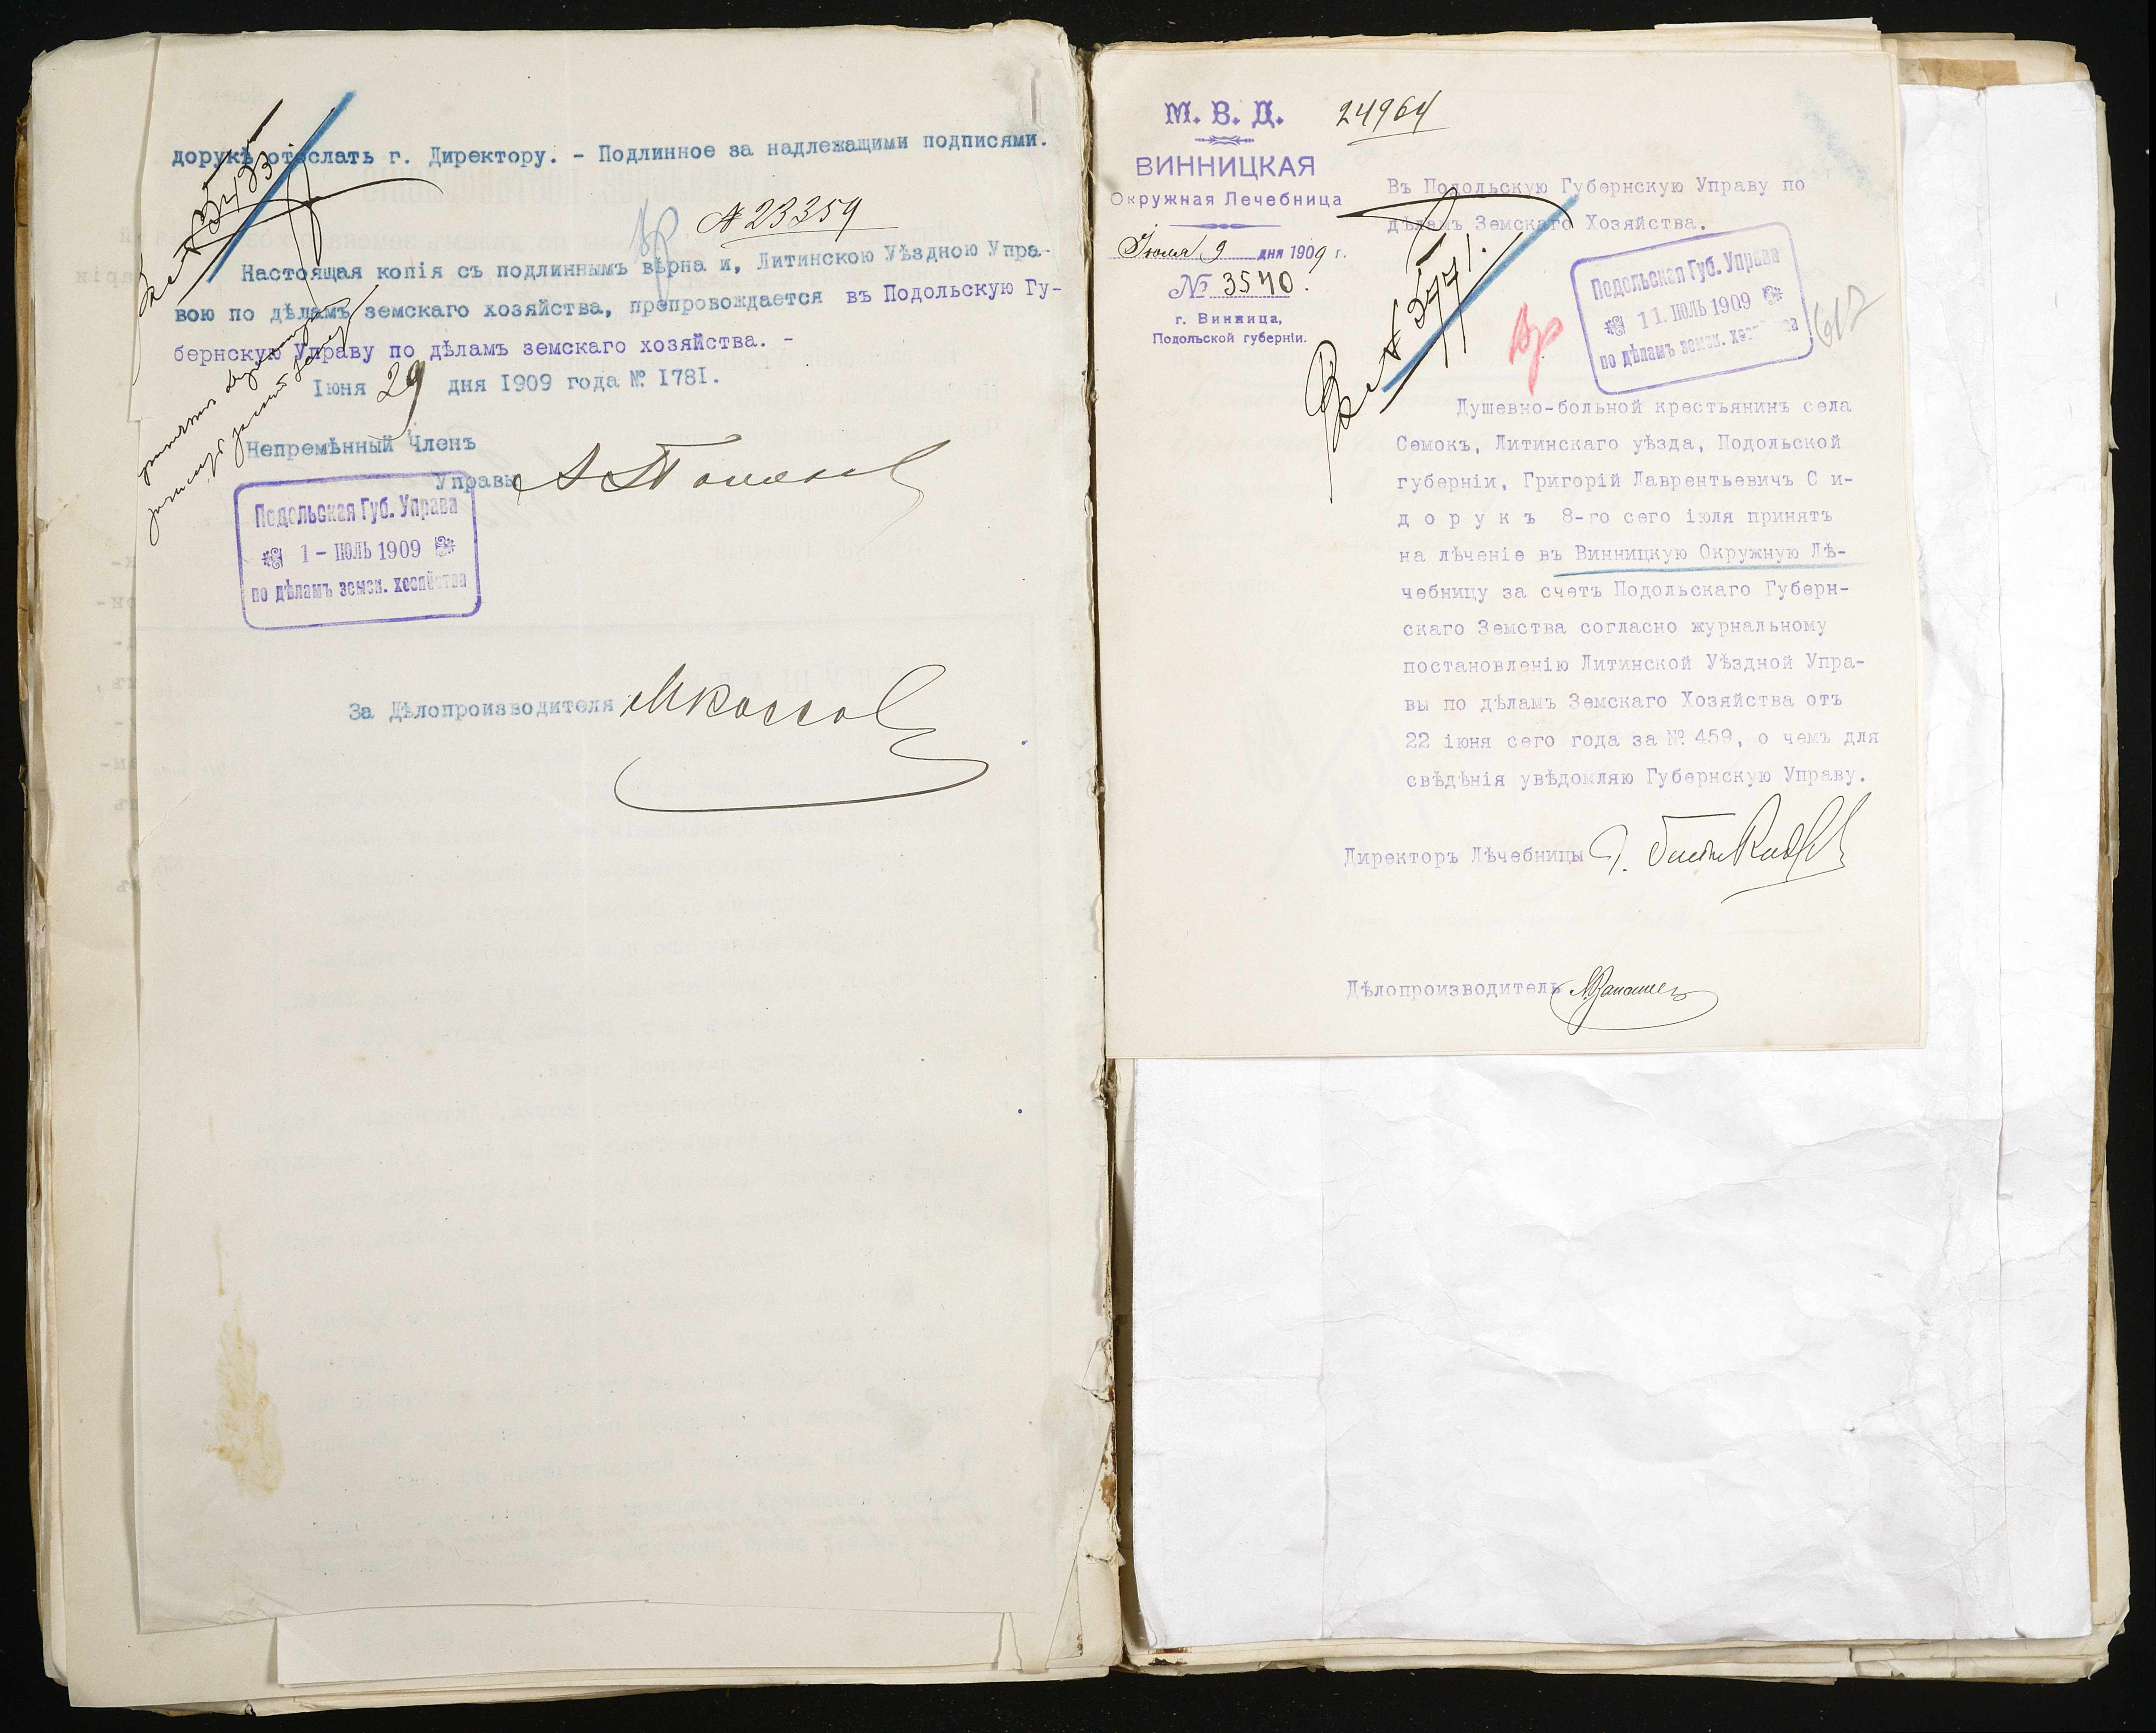 дорукѣ отослать г. Директору. - Подлинное за надлежащими подписями.
№ 23359
Настоящая копія съ подлиннымъ вѣрна и, Литинскою Уѣздною Упра-
вою по дѣламъ земскаго хозяйства, препровождается въ Подольскую Гу-
бернскую Управу по дѣламъ земскаго хозяйства. -
Іюня 29 дня 1909 года № 1781.
Непремѣнный Членъ
Управы
Подольская Губ. Управа
1 - ІЮЛЬ 1909
по дѣламъ земск. хозяйства
За Дѣлопроизводителя
М. В. Д.
24964
ВИННИЦКАЯ
Окружная Лечебница
Іюля 9 дня 1909 г.
№ 3540.
г. Винница,
Подольской губерніи.
Въ Подольскую Губернскую Управу по
дѣламъ Земскаго Хозяйства.
Подольская Губ. Управа
11. ІЮЛЬ 1909
по дѣламъ земск. хозяйства
Душевно-больной крестьянинъ села
Семокъ, Литинскаго уѣзда, Подольской
губерніи, Григорій Лаврентьевичъ С и-
д о р у к ъ 8-го сего іюля принятъ
на лѣченіе въ Винницкую Окружную Лѣ-
чебницу за счетъ Подольскаго Губерн-
скаго Земства согласно журнальному
постановленію Литинской Уѣздной Упра-
вы по дѣламъ Земскаго Хозяйства отъ
22 іюня сего года за № 459, о чемъ для
свѣдѣнія увѣдомляю Губернскую Управу.
Директоръ Лѣчебницы
Дѣлопроизводитель